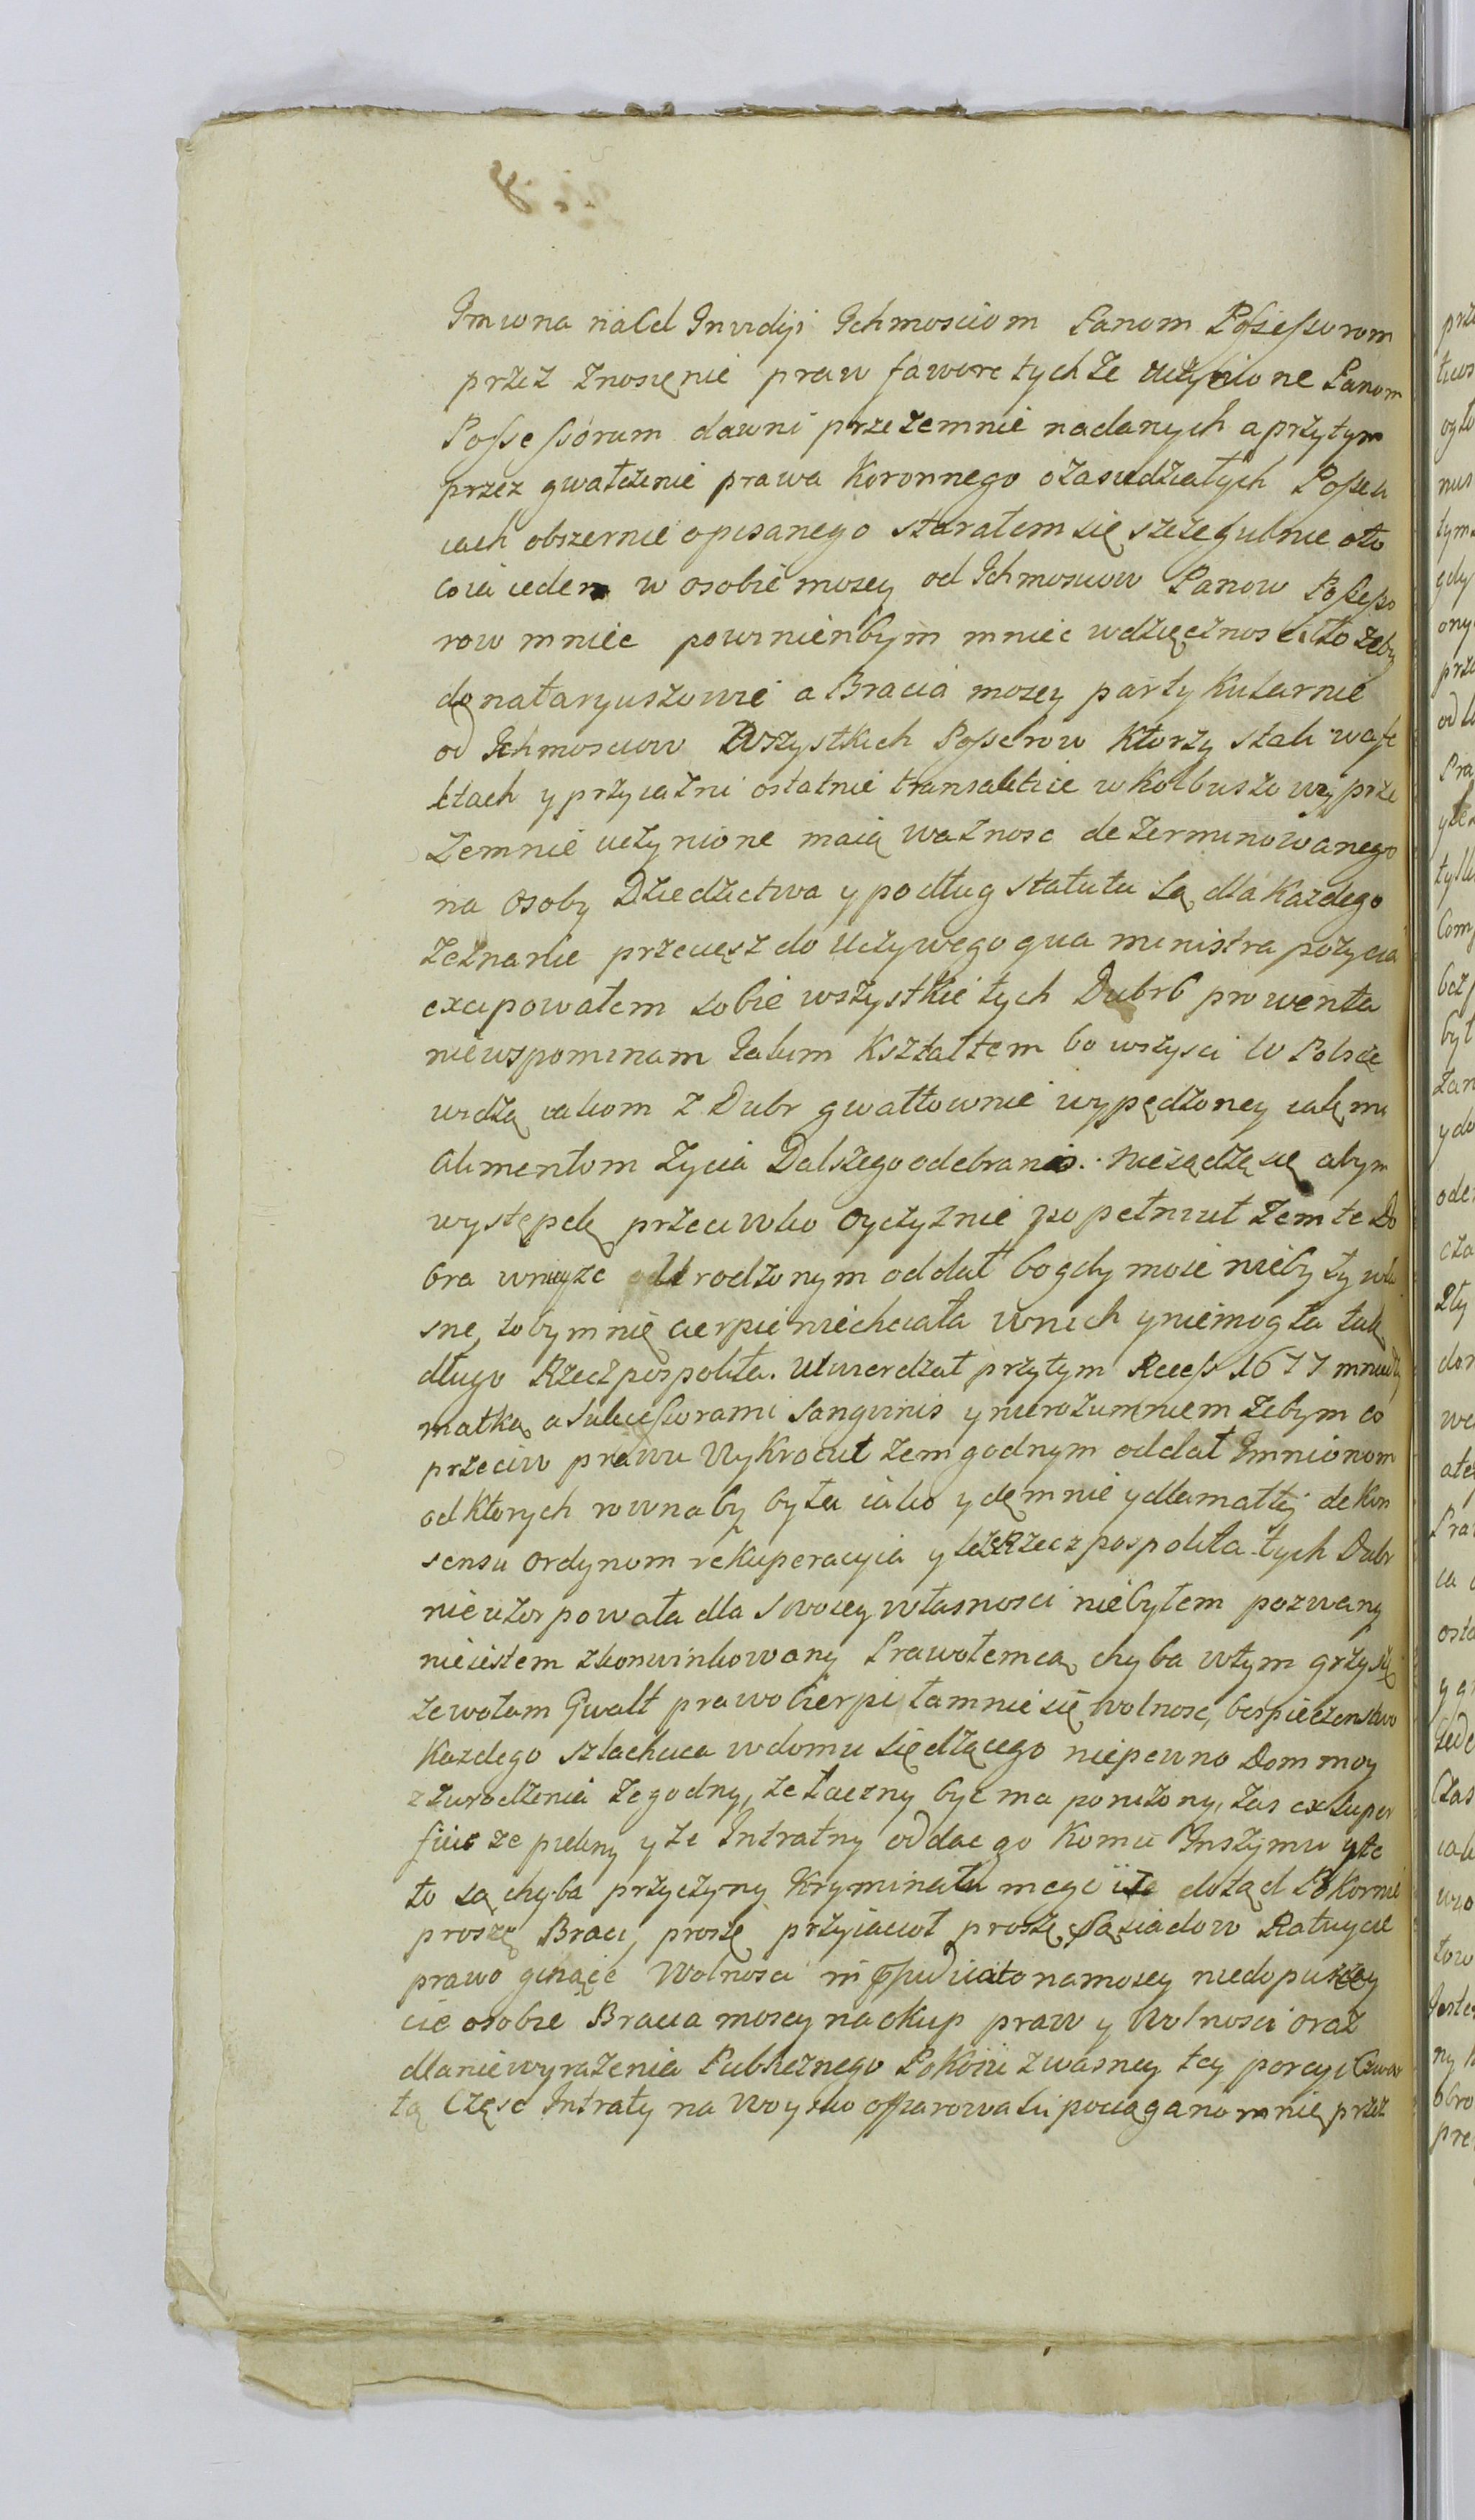 Imwna nald Invidyi Ichmosciom Panom Possessorom
przez znosięnie praw fawore tychże uczynione Panom
Possessorum dawni przezemnie nadanych a przytym
przez gwałczenie prawa Koronnego o zasiedziałych Posses
iach obszernie opisanego starałem się szczegulnie oto
co ia ieden w osobie mojey od Ichmosciow Panow Possesso
row mniec powinienbym mniec wdzięcznosci to żeby
donataryuszowie a Bracia mojey partykularnie
od Ichmosciow Wszystkich Possesrow Ktorzy stali w afe
ktach y przyiazni ostatnie transakcie w Kolbuszowy prze
zemnie uczynione maią waznosc determinowanego
na osoby Dziedzictwa y podług statutu są dla Kazdego
zeznanie przeciesz do uczywego qua ministra pozycia
excypowałem sobie wszystkie tych Dubr prowenta
niewspominam Iakim Kształtem bo wszysci w Polscze
widzą iakom z Dubr gwałtownie wypędzoney iakę mi
alimentom zycia Dalszego odebrano. niesądzę się abym
występek przeciwko Oyczyznie popełniuł żem te Do
bra wnięze odrodzonym oddał bo gdy moie nieby ły wła
sne, tobym nię cierpie niechciała w nich y niemogła tak
długo Rzeczpospolita. Utwerdzał przytym Recess 1677 mnie
matką a sukcessorami sangvinis y nierozumniem żebym co
przeciw prawu Wykrociuł żem godnym oddał Imnionom
od Ktorych rownaby była iako y dęmnie y dlamattij de Kon
sensu ordynom rekuperacyia y też Rzeczpospolita tych Dubr
nieuzorpowała dla swoiey własnosci niebyłem pozwany
nieiestem zkonwinkowany Prawołemcą chyba wtym grzyszę
ze wołam Gwałt prawo cierpi łamnie się wolnosc, bespieczenstwo
Kazdego szlachcica w domu siędzącego niepewno Dom moy
z zurodzenia że godny, że łaczny byc ma ponizony, zas ex super
ficie ze piekny y ze Intratny oddac go Komu Inszymu yte
to są chyba przyczyny Kryminału mego iże dotąd Pokornie
proszę Braci, proszę przyiacioł proszę Sąsiadow Ratuycie
prawo ginące Wolnosci na mojey niedopuszcy
cie osobie Bracia mojey na okup praw y Wolnosci oraz
dlaniewyrażenia Publicznego Pokoiu zwasney tey porcyi Czwar
tą Częsc Intraty na Woysko offiarowali pociągano mnię przez